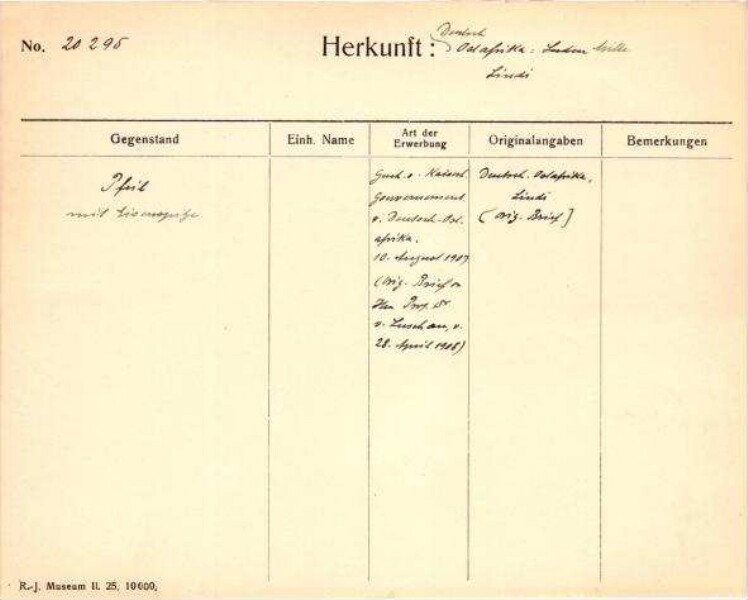 No. 20 295
Herkunft: Deutsch
Ostafrika: Süden Mitte
Lindi
Gegenstand
Einh. Name
Art der Erwerbung
Originalangaben
Bemerkungen
Pfeil
mit Eisenspitze
Gesch. v. Kaiserl.
Gouvernement
v. Deutsch-Ost-
afrika.
10. August 1907
(Orig. Brief v
Hrn Prof. Dr
v. Luschan, v.
28. April 1908)
Deutsch. Ostafrika,
Lindi
(Orig. Brief)
R.-J. Museum II. 25, 10000,